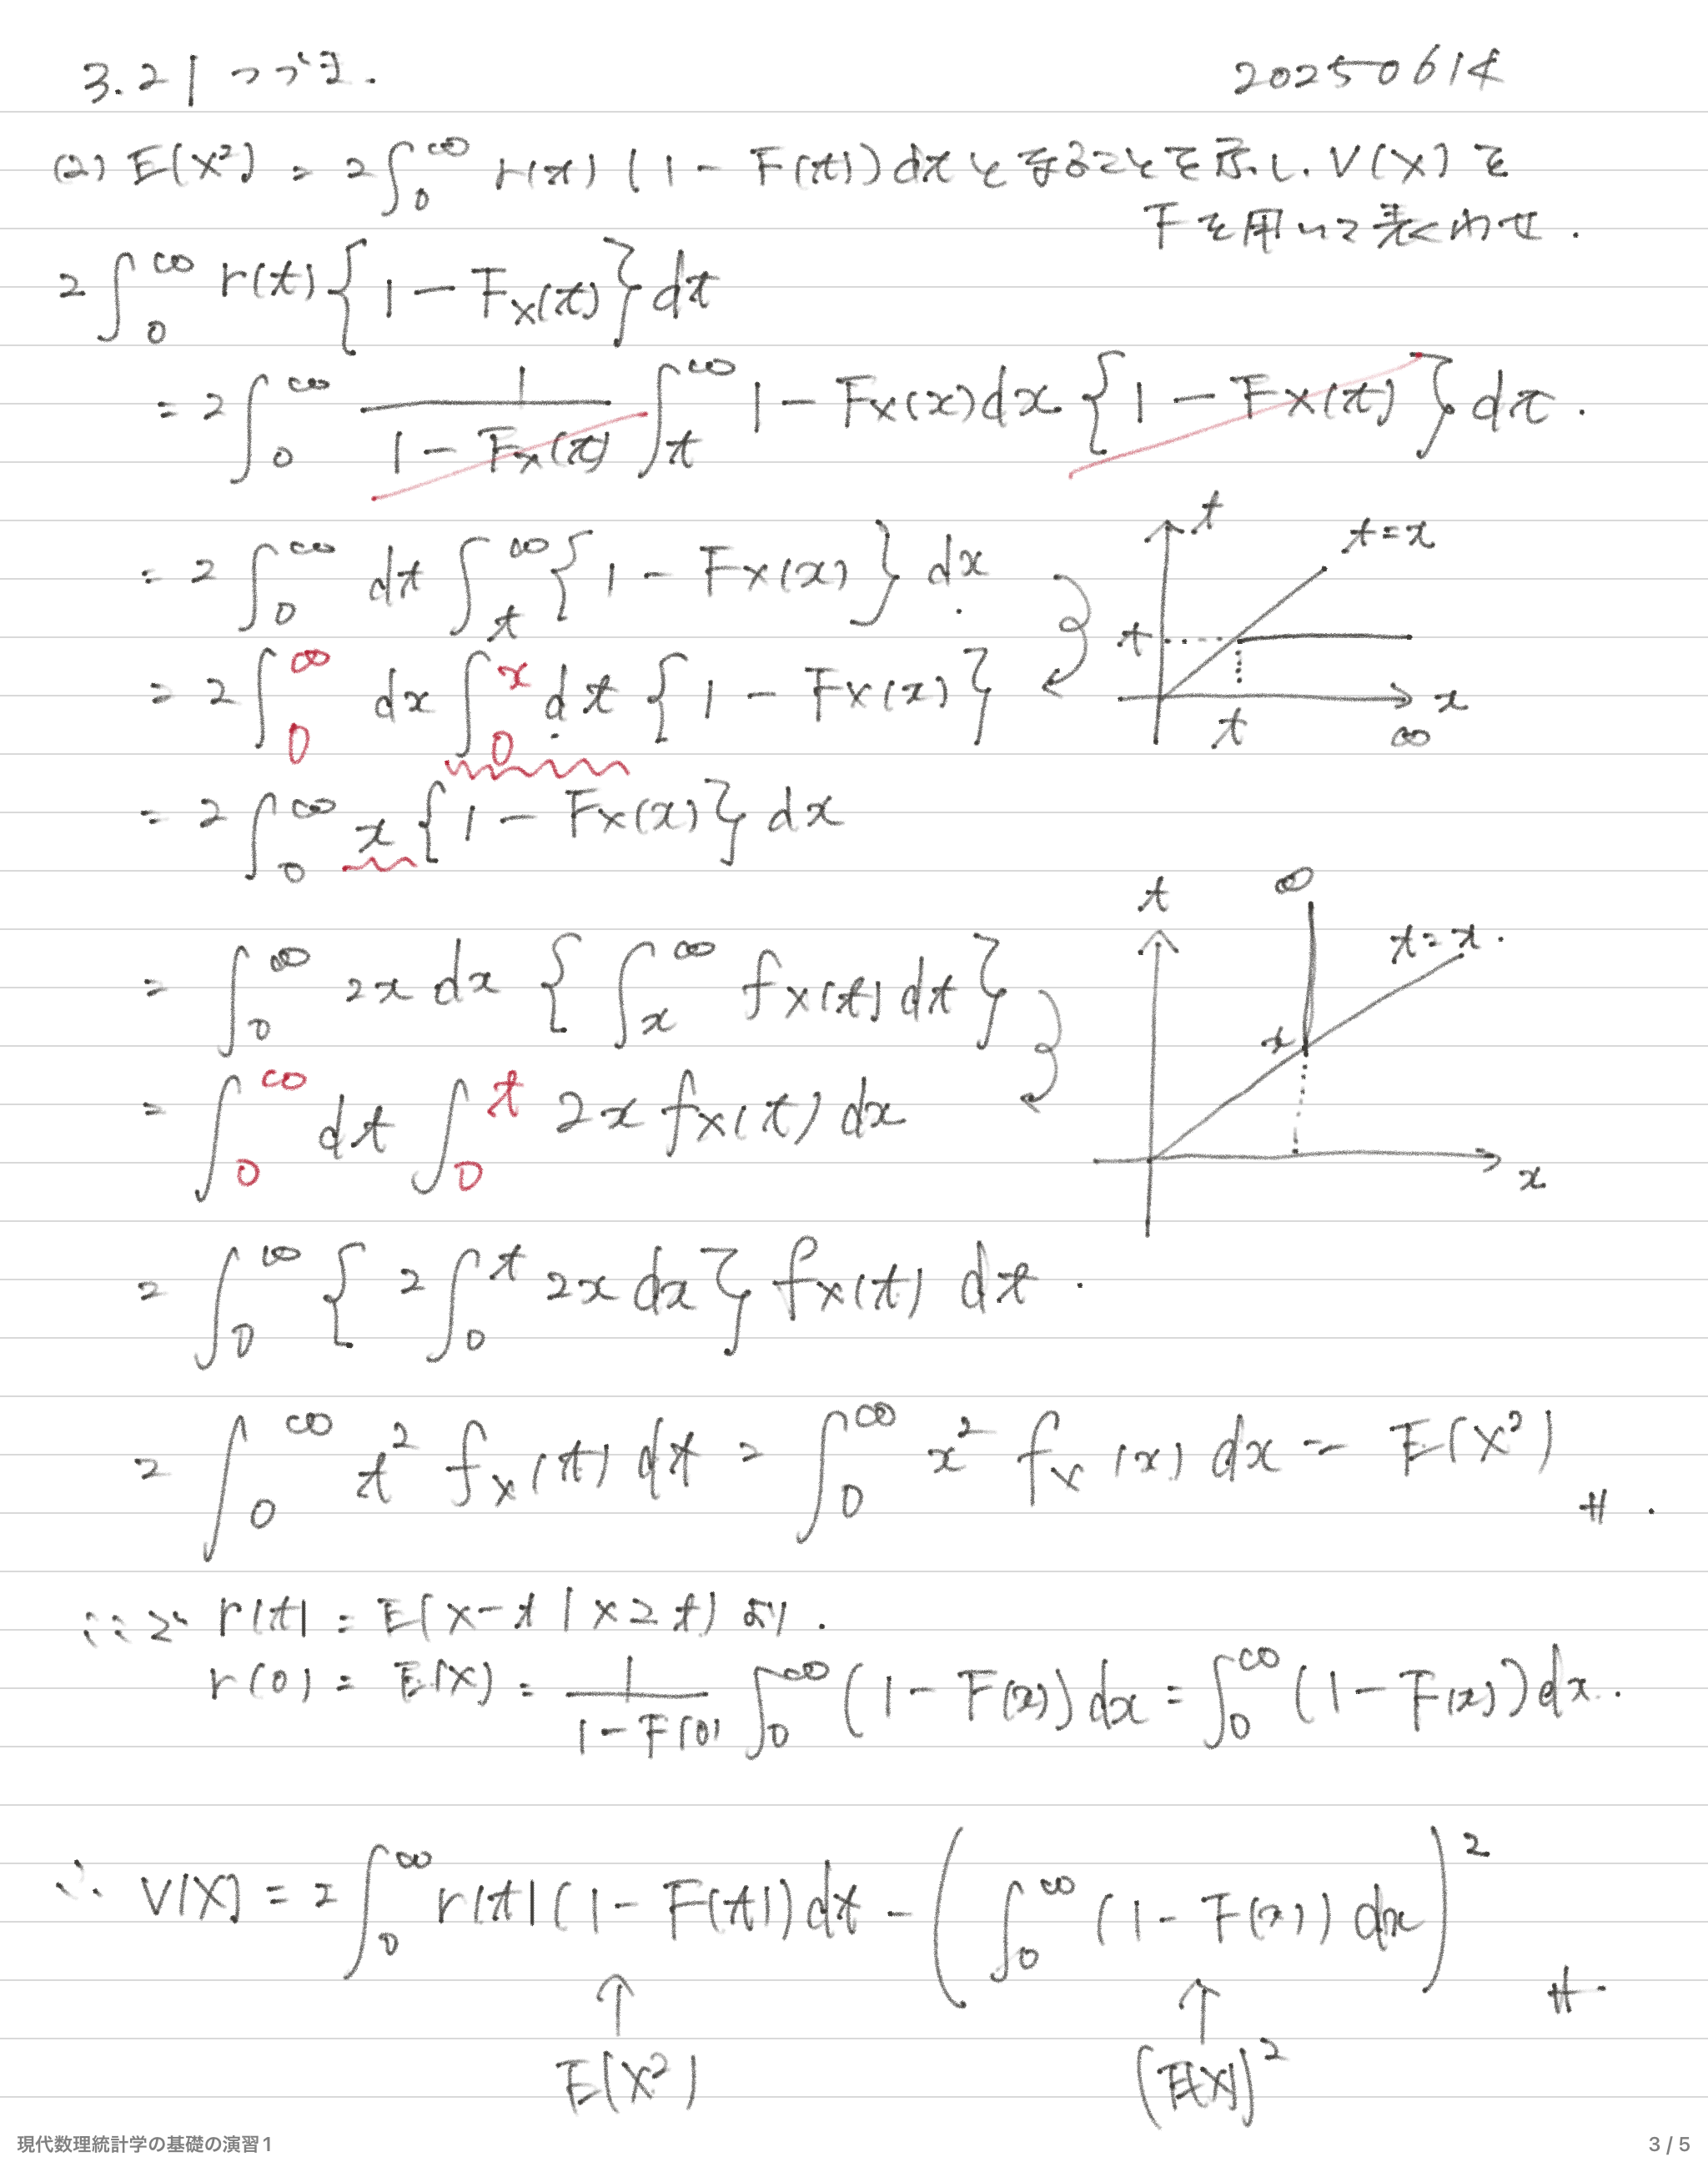 3.21 つづき. 20250614
(2) E(X²) = 2∫₀^∞ r(t) (1 - F(t)) dt となることを示し. V(X) を
Fを用いて表わせ.
2∫₀^∞ r(t) {1 - F_X(t)} dt
= 2∫₀^∞ 1/(1 - F_X(t)) ∫_t^∞ 1 - F_X(x) dx. {1 - F_X(t)} dt.
= 2∫₀^∞ dt ∫_t^∞ {1 - F_X(x)} dx.
t
t=x
t
t
∞
x
= 2∫₀^∞ dx ∫₀^x dt {1 - F_X(x)}
= 2∫₀^∞ x {1 - F_X(x)} dx
= ∫₀^∞ 2x dx {∫_x^∞ f_X(t) dt}
t
∞
t=x.
x
x
= ∫₀^∞ dt ∫₀^t 2x f_X(t) dx
= ∫₀^∞ {2∫₀^t 2x dx} f_X(t) dt.
= ∫₀^∞ t² f_X(t) dt = ∫₀^∞ x² f_X(x) dx = E(X²) #.
ここで r(t) = E(X-t | X≥t) より.
r(0) = E(X) = 1/(1 - F(0)) ∫₀^∞ (1 - F(x)) dx = ∫₀^∞ (1 - F(x)) dx.
∴ V(X) = 2∫₀^∞ r(t) (1 - F(t)) dt - (∫₀^∞ (1 - F(x)) dx)² #.
↑ ↑
E(X²) (E[X])²
現代数理統計学の基礎の演習1 3 / 5